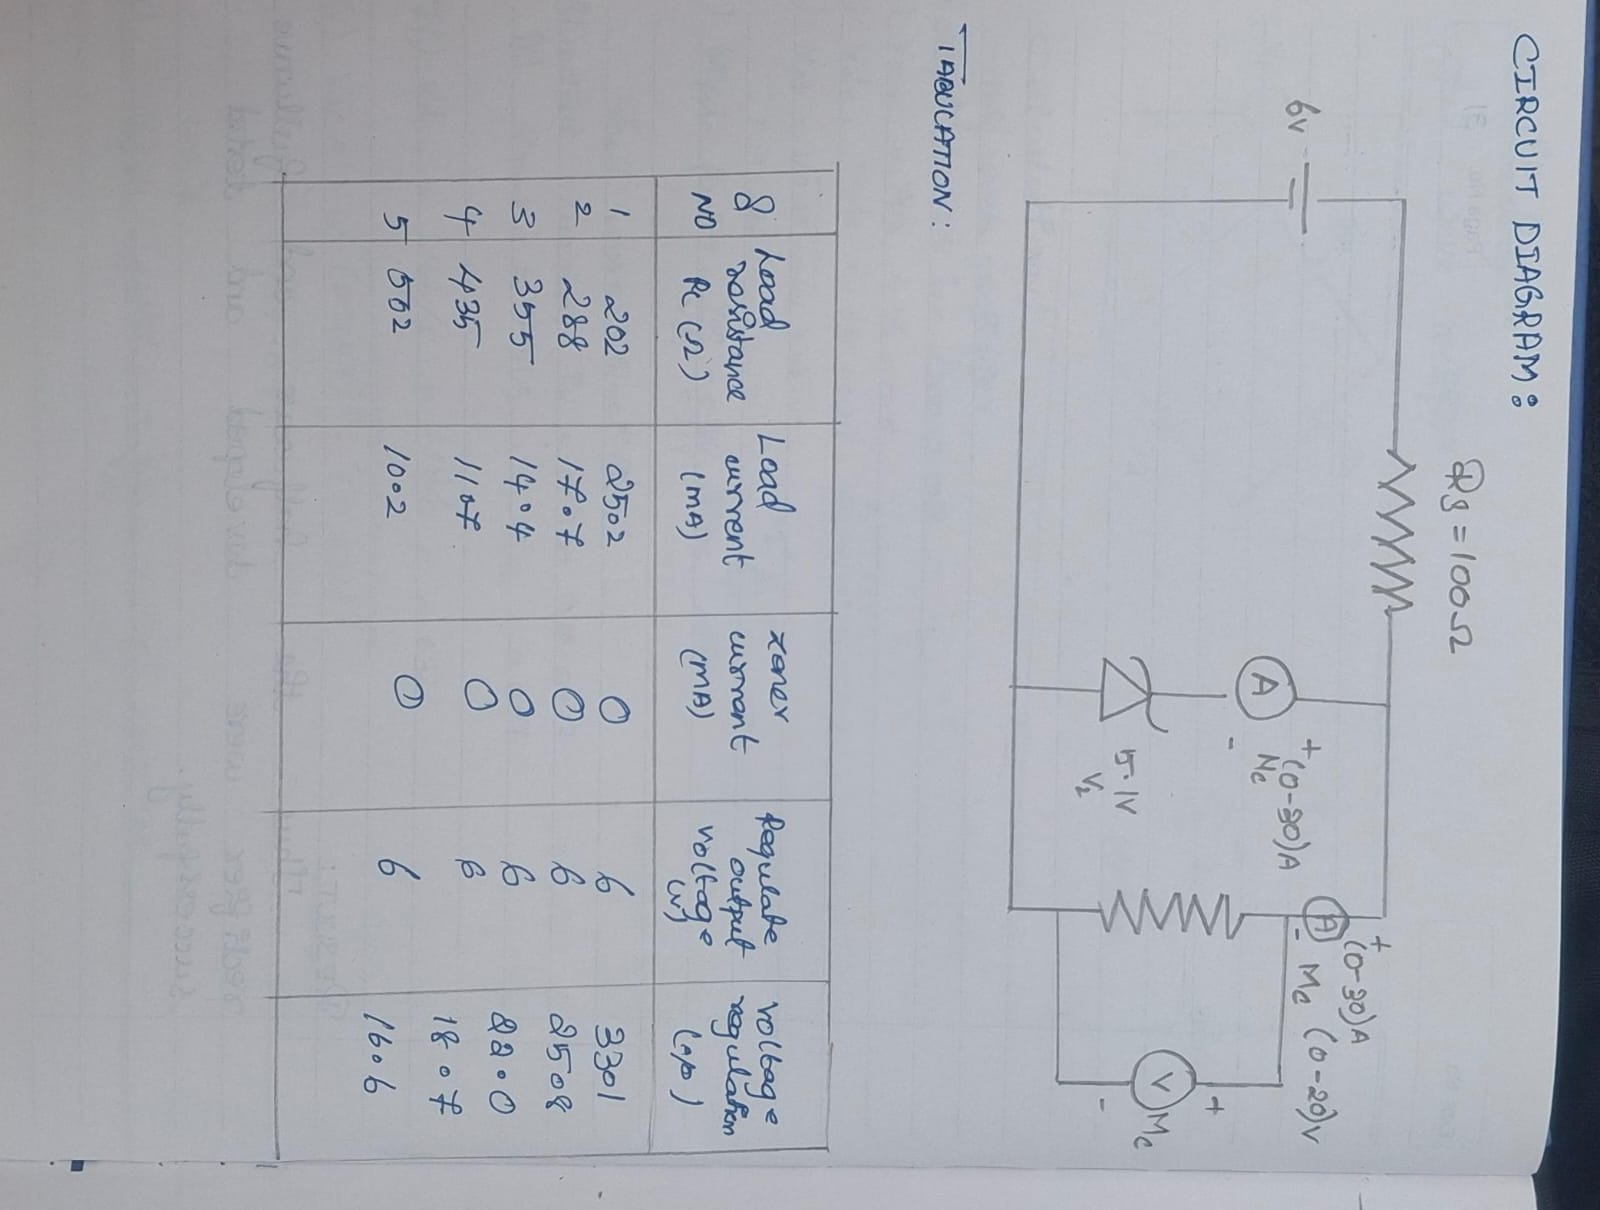 CIRCUIT DIAGRAM:
Rs = 100Ω
6v
A
+
(0-30)A
Mc
-
+
(0-30)A
A
-
Mc
(0-20)v
+
V
Mc
-
5.1V
Vz
TABULATION:
S NO | Load resistance RL (Ω) | Load current (mA) | zener current (mA) | Regulate output voltage (v) | voltage regulation (%)
1 | 202 | 25.2 | 0 | 6 | 33.1
2 | 288 | 17.7 | 0 | 6 | 25.8
3 | 355 | 14.4 | 0 | 6 | 22.0
4 | 435 | 11.7 | 0 | 6 | 18.7
5 | 502 | 10.2 | 0 | 6 | 16.6